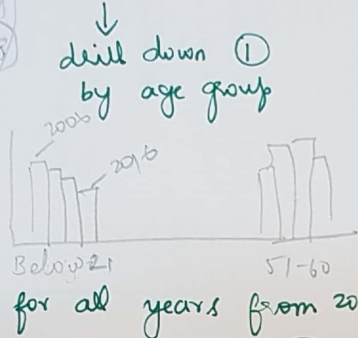 drill down ①
by age group
2006
2016
Below 21
51-60
for all years from 20